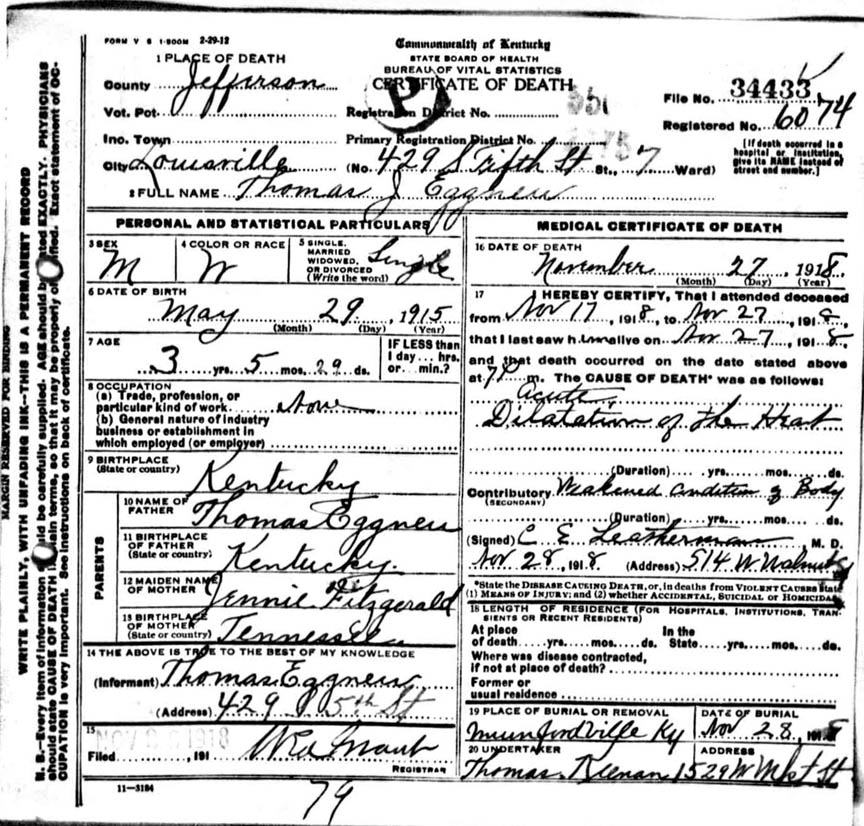 FORM V S 1-500M 2-29-12
Commonwealth of Kentucky
STATE BOARD OF HEALTH
BUREAU OF VITAL STATISTICS
CERTIFICATE OF DEATH
1 PLACE OF DEATH
County Jefferson
Vot. Pct.
Inc. Town
City Louisville
Registration District No.
Primary Registration District No.
(No. 429 S Fifth St St., 7 Ward)
File No. 34433
Registered No. 6074
[If death occurred in a hospital or institution, give its NAME instead of street and number.]
2 FULL NAME Thomas J Eggnew
PERSONAL AND STATISTICAL PARTICULARS
3 SEX M
4 COLOR OR RACE W
5 SINGLE, MARRIED WIDOWED, OR DIVORCED (Write the word) Single
6 DATE OF BIRTH
May 29, 1915
(Month) (Day) (Year)
7 AGE
3 yrs. 5 mos. 29 ds.
IF LESS than 1 day... hrs. or... min.?
8 OCCUPATION
(a) Trade, profession, or particular kind of work None
(b) General nature of industry business or establishment in which employed (or employer)
9 BIRTHPLACE (State or country) Kentucky
PARENTS
10 NAME OF FATHER Thomas Eggnew
11 BIRTHPLACE OF FATHER (State or country) Kentucky
12 MAIDEN NAME OF MOTHER Jennie Fitzgerald
13 BIRTHPLACE OF MOTHER (State or country) Tennessee
14 THE ABOVE IS TRUE TO THE BEST OF MY KNOWLEDGE
(Informant) Thomas Eggnew
(Address) 429 S 5th St
15
Filed, 191
REGISTRAR
11-3184
MEDICAL CERTIFICATE OF DEATH
16 DATE OF DEATH
November 27, 1918
(Month) (Day) (Year)
17 I HEREBY CERTIFY, That I attended deceased
from Nov 17, 1918, to Nov 27, 1918,
that I last saw him alive on Nov 27, 1918
and that death occurred on the date stated above
at 7 m. The CAUSE OF DEATH* was as follows:
Acute
Dilatation of the Heart
(Duration) yrs. mos. ds.
Contributory (SECONDARY) Weakened Condition of Body
(Duration) yrs. mos. ds.
(Signed) C E Leatherman, M. D.
Nov 28, 1918 (Address) 514 W Walnut
*State the DISEASE CAUSING DEATH, or, in deaths from VIOLENT CAUSES state
(1) MEANS OF INJURY; and (2) whether ACCIDENTAL, SUICIDAL or HOMICIDAL
18 LENGTH OF RESIDENCE (FOR HOSPITALS, INSTITUTIONS, TRANSIENTS OR RECENT RESIDENTS)
At place of death yrs. mos. ds. In the State yrs. mos. ds.
Where was disease contracted, if not at place of death?
Former or usual residence
19 PLACE OF BURIAL OR REMOVAL Munfordville Ky
DATE OF BURIAL Nov 28, 1918
20 UNDERTAKER Thomas Keenan
ADDRESS 1529 W Mkt St
79
MARGIN RESERVED FOR BINDING
WRITE PLAINLY, WITH UNFADING INK—THIS IS A PERMANENT RECORD
N. B.—Every item of information should be carefully supplied. AGE should be stated EXACTLY. PHYSICIANS
should state CAUSE OF DEATH in plain terms, so that it may be properly classified. Exact statement of OC-
CUPATION is very important. See instructions on back of certificate.